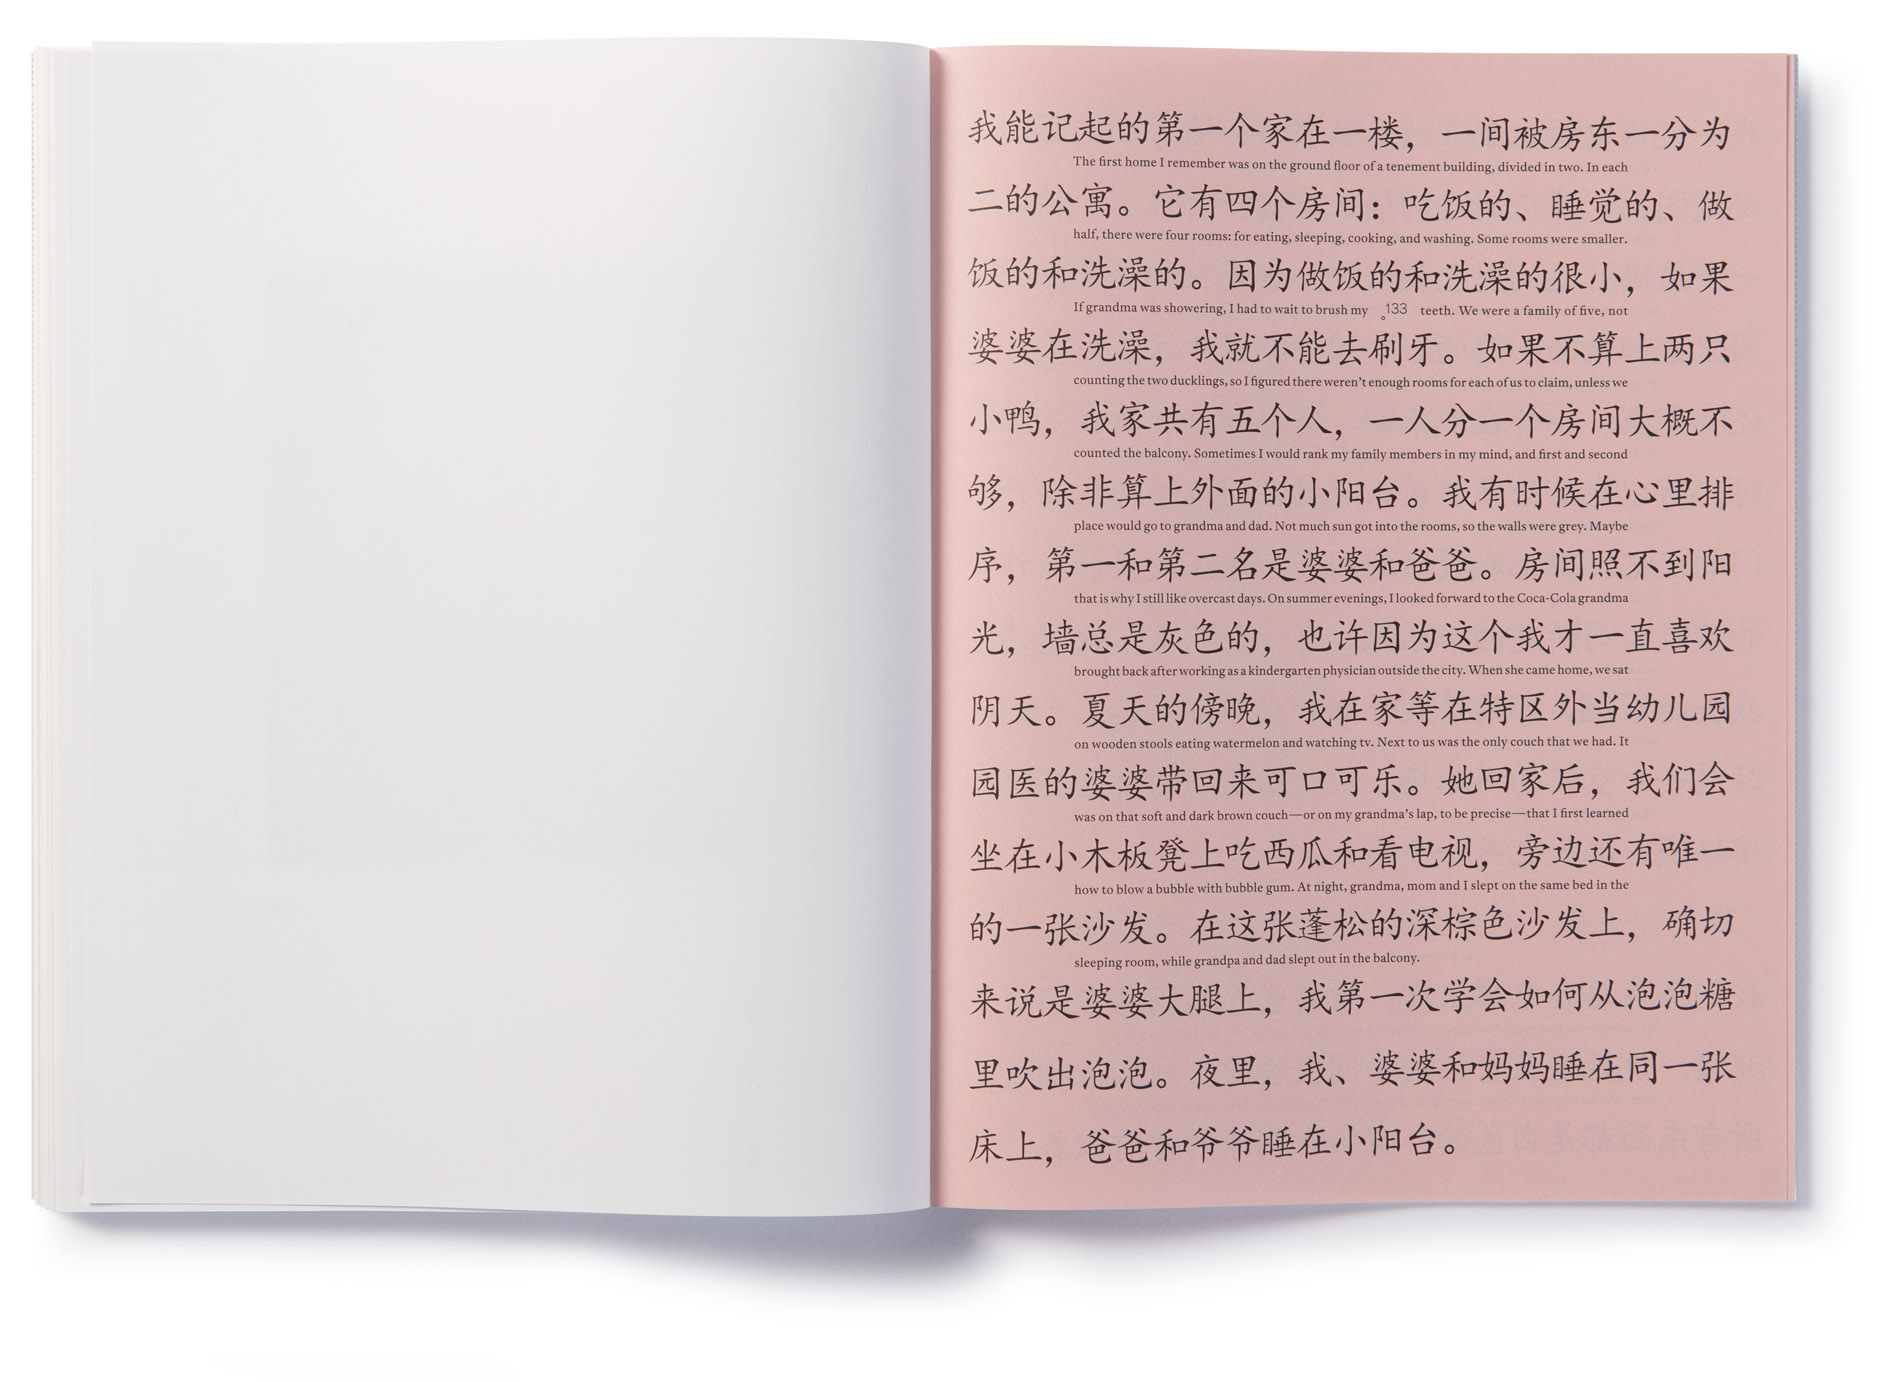 我能记起的第一个家在一楼，一间被房东一分为
The first home I remember was on the ground floor of a tenement building, divided in two. In each
二的公寓。它有四个房间：吃饭的、睡觉的、做
half, there were four rooms: for eating, sleeping, cooking, and washing. Some rooms were smaller.
饭的和洗澡的。因为做饭的和洗澡的很小，如果
If grandma was showering, I had to wait to brush my 。133 teeth. We were a family of five, not
婆婆在洗澡，我就不能去刷牙。如果不算上两只
counting the two ducklings, so I figured there weren’t enough rooms for each of us to claim, unless we
小鸭，我家共有五个人，一人分一个房间大概不
counted the balcony. Sometimes I would rank my family members in my mind, and first and second
够，除非算上外面的小阳台。我有时候在心里排
place would go to grandma and dad. Not much sun got into the rooms, so the walls were grey. Maybe
序，第一和第二名是婆婆和爸爸。房间照不到阳
that is why I still like overcast days. On summer evenings, I looked forward to the Coca-Cola grandma
光，墙总是灰色的，也许因为这个我才一直喜欢
brought back after working as a kindergarten physician outside the city. When she came home, we sat
阴天。夏天的傍晚，我在家等在特区外当幼儿园
on wooden stools eating watermelon and watching tv. Next to us was the only couch that we had. It
园医的婆婆带回来可口可乐。她回家后，我们会
was on that soft and dark brown couch—or on my grandma’s lap, to be precise—that I first learned
坐在小木板凳上吃西瓜和看电视，旁边还有唯一
how to blow a bubble with bubble gum. At night, grandma, mom and I slept on the same bed in the
的一张沙发。在这张蓬松的深棕色沙发上，确切
sleeping room, while grandpa and dad slept out in the balcony.
来说是婆婆大腿上，我第一次学会如何从泡泡糖
里吹出泡泡。夜里，我、婆婆和妈妈睡在同一张
床上，爸爸和爷爷睡在小阳台。